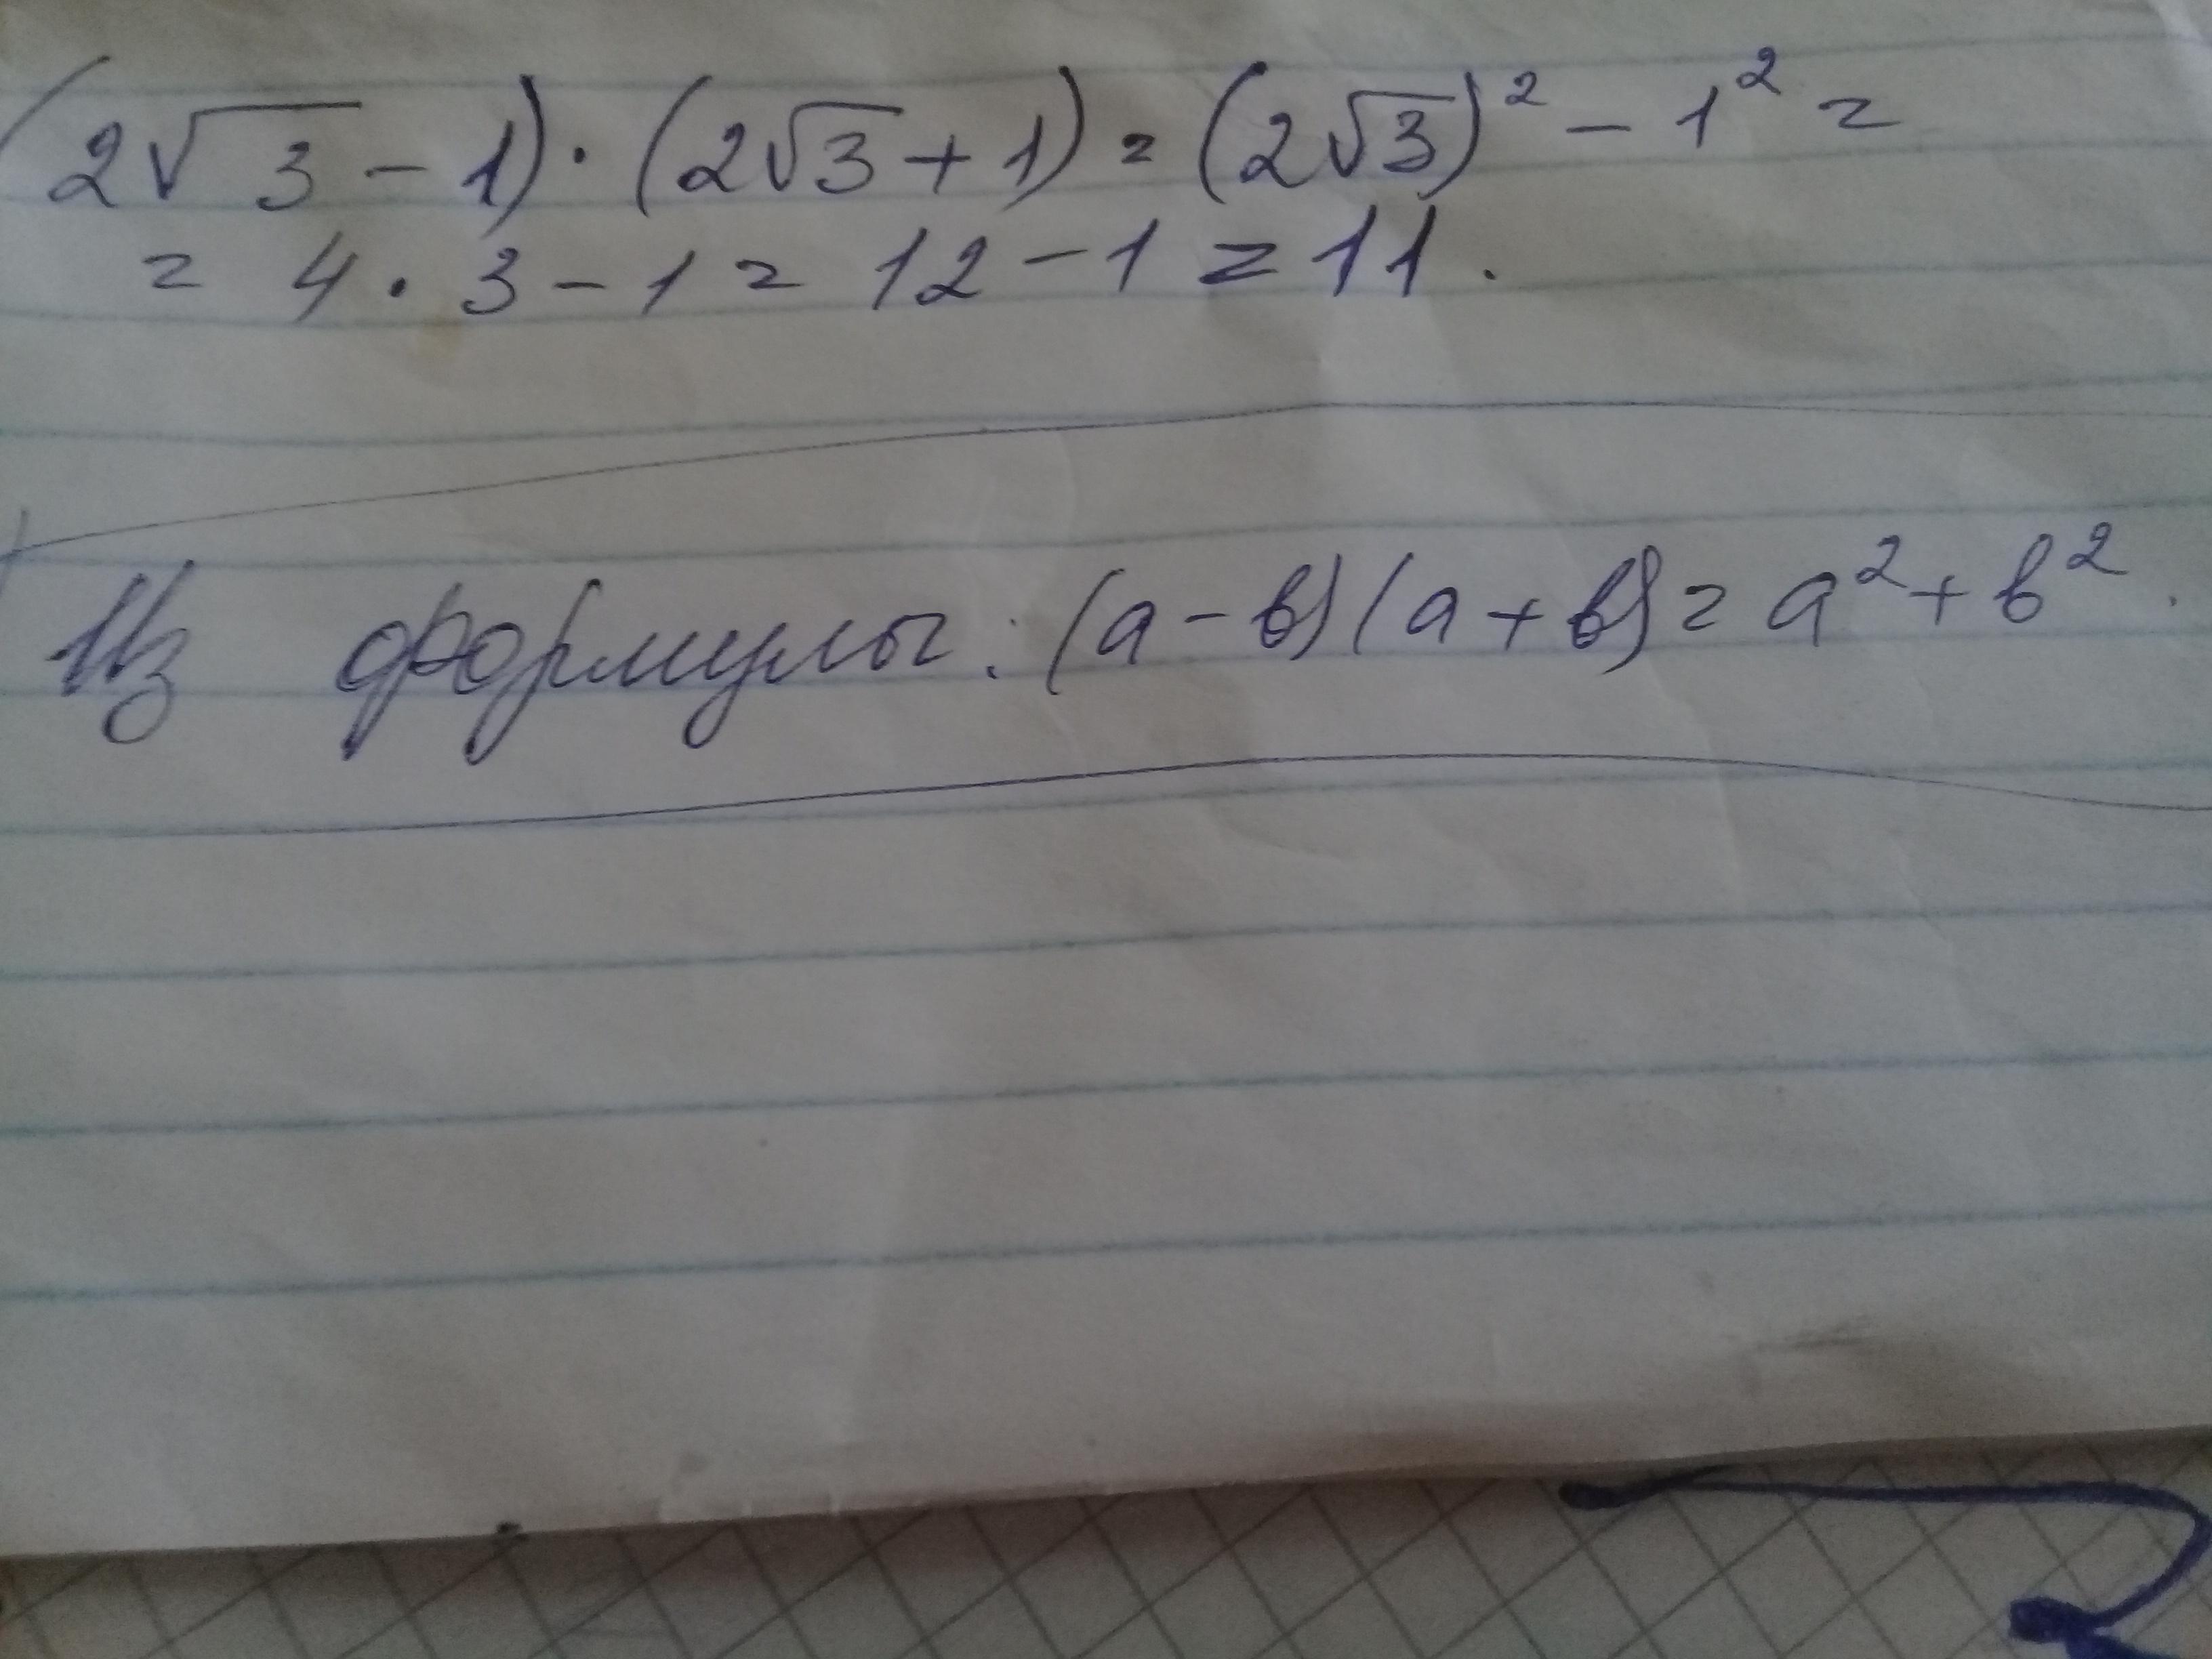 (2√3 - 1) · (2√3 + 1) = (2√3)² - 1² =
= 4 · 3 - 1 = 12 - 1 = 11.
Из формулы: (а - в)(а + в) = а² + в².